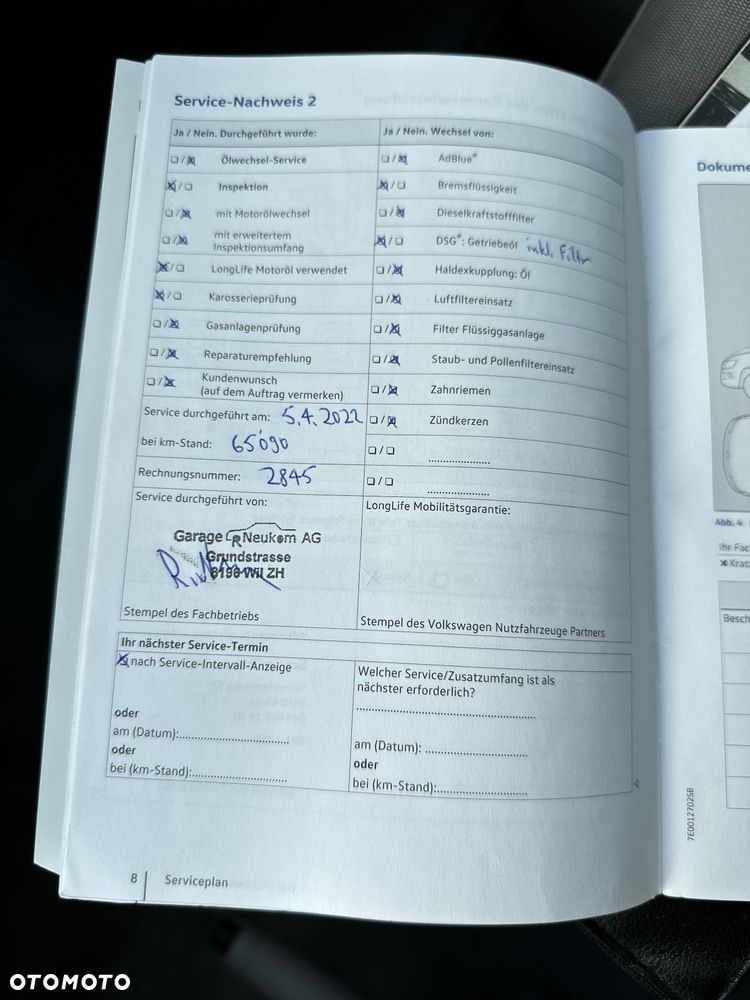 Service-Nachweis 2
Ja / Nein. Durchgeführt wurde:
☐/☒ Ölwechsel-Service
☒/☐ Inspektion
☐/☒ mit Motorölwechsel
☐/☒ mit erweitertem
Inspektionsumfang
☒/☐ LongLife Motoröl verwendet
☒/☐ Karosserieprüfung
☐/☒ Gasanlagenprüfung
☐/☒ Reparaturempfehlung
☐/☒ Kundenwunsch
(auf dem Auftrag vermerken)
Service durchgeführt am: 5.4.2022
bei km-Stand: 65'090
Rechnungsnummer: 2845
Service durchgeführt von:
Garage Neukom AG
Grundstrasse
8196 Wil ZH
Stempel des Fachbetriebs
Ja / Nein. Wechsel von:
☐/☒ AdBlue®
☒/☐ Bremsflüssigkeit
☐/☒ Dieselkraftstofffilter
☒/☐ DSG®: Getriebeöl inkl. Filter
☐/☒ Haldexkupplung: Öl
☐/☒ Luftfiltereinsatz
☐/☒ Filter Flüssiggasanlage
☐/☒ Staub- und Pollenfiltereinsatz
☐/☒ Zahnriemen
☐/☒ Zündkerzen
☐/☐ .....................
☐/☐ .....................
LongLife Mobilitätsgarantie:
Stempel des Volkswagen Nutzfahrzeuge Partners
Ihr nächster Service-Termin
☒ nach Service-Intervall-Anzeige
oder
am (Datum):..............................
oder
bei (km-Stand):..........................
Welcher Service/Zusatzumfang ist als
nächster erforderlich?
..................................................
am (Datum): ............................
oder
bei (km-Stand):.........................
8 Serviceplan
Dokume
Abb. 4
Ihr Fac
x Kratz
Besch
7E0012702SB
OTOMOTO